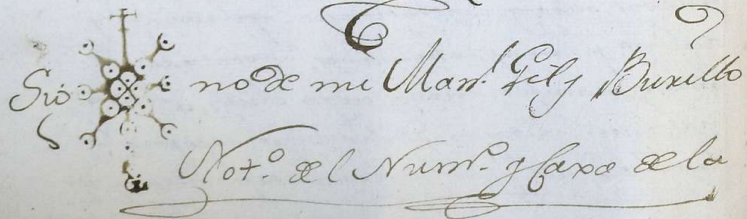 Sig no de mi Man.l Gil y Burillo
Not.o del Num.o y Caxa de la